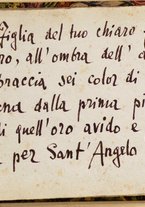 Figlia del tuo chiaro
ro, all'ombra dell'
braccia sei color di
ena dalla prima pi
di quell'oro avido e
per Sant'Angelo